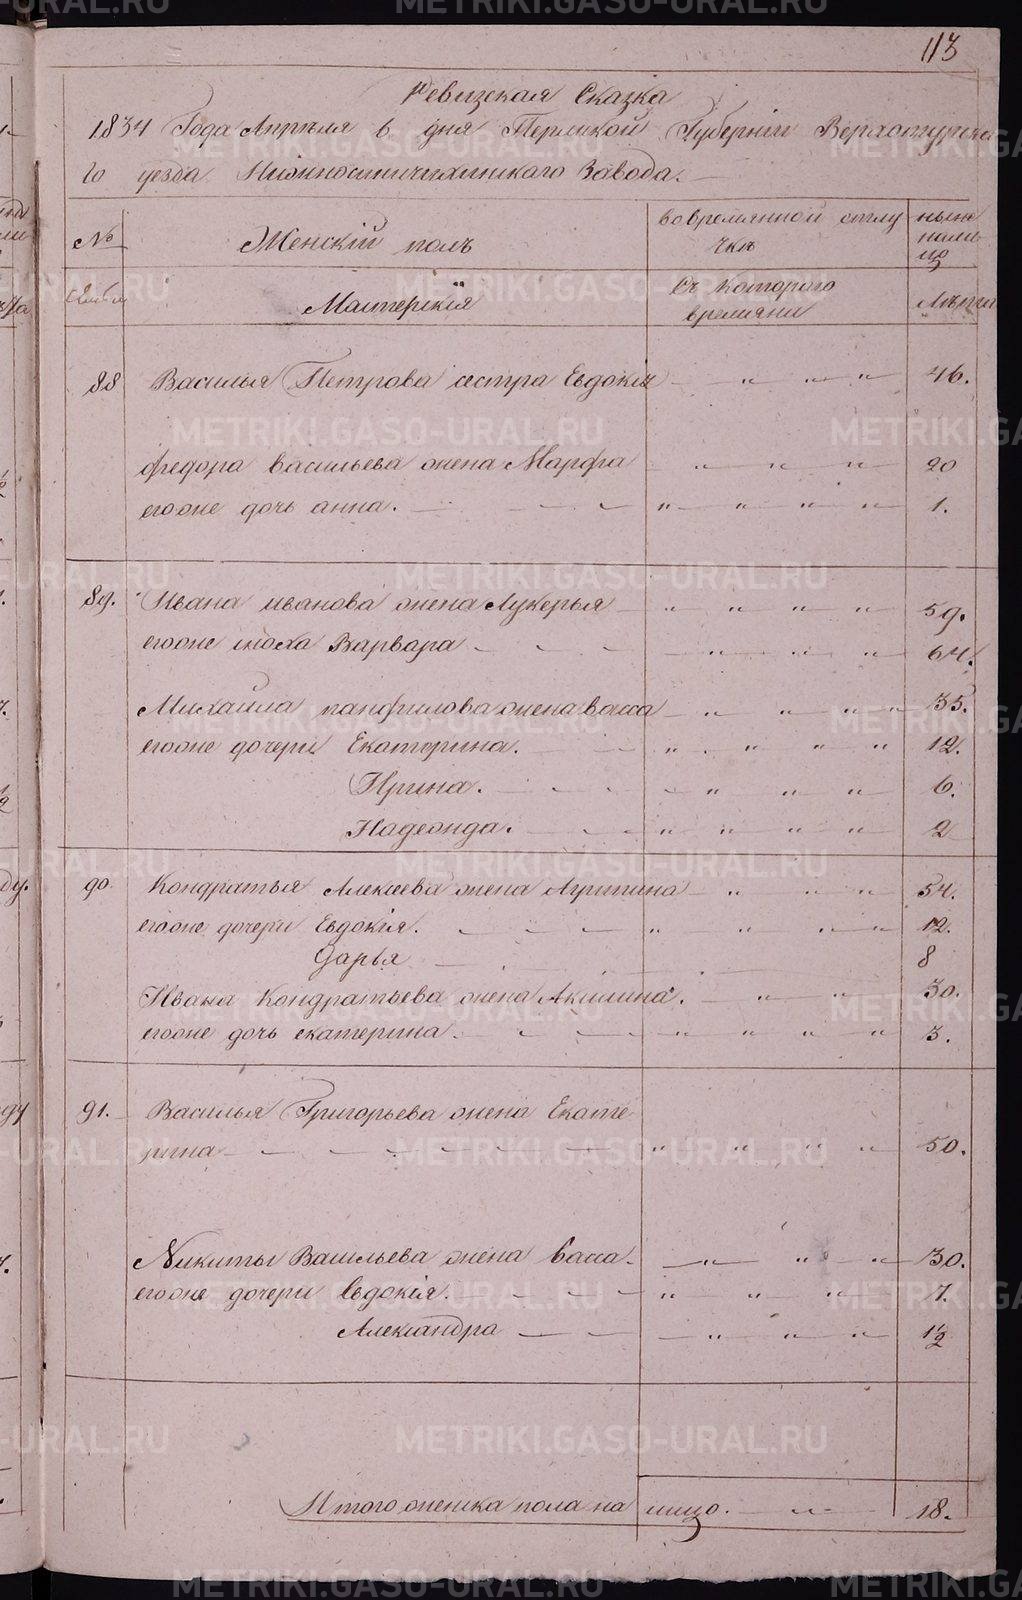 113
Ревизская Сказка
1834 Года Апреля 6 дня Пермской Губернии Верхотурска
го уезда Нижносинячихинскаго Завода.
№ Женскiй полъ вовремянной отлу
чкѣ
ныне
нали
цо
Мастерскiя Съ котораго
времяни
Лѣта
88 Василья Петрова сестра Евдокiя — " — " — " — 46.
федора васильева жена Марфа — " — " — " — 20
егоже дочь анна. — " — " — " — " — 1.
89. Ивана иванова жена Лукерья — " — " — " — " — 59.
егоже сноха Варвара — " — " — " — 64.
Михаила панфилова жена васса — " — " — " — " — 35.
егоже дочери Екатерина. — " — " — " — " — 12.
Ирина. — " — " — " — 6.
Надежда. — " — " — " — " — 2
90. Кондратья Алексеева жена Агрипина " — " — " — 54.
егоже дочери Евдокiя. — " — " — " — " — 12.
Дарья 8
Ивана Кондратьева жена Акилина. — " — " — 30.
егоже дочь екатерина. — " — " — " — " — 3.
91. Василья Григорьева жена Екате
рина — " — " — " — " — 50.
Никиты Васильева жена васса. — " — " — " — 30.
егоже дочери Евдокiя. — " — " — " — 7.
Александра — " — " — " — 1/2
Итого женска пола на лицо. — " — 18.
METRIKI.GASO-URAL.RU